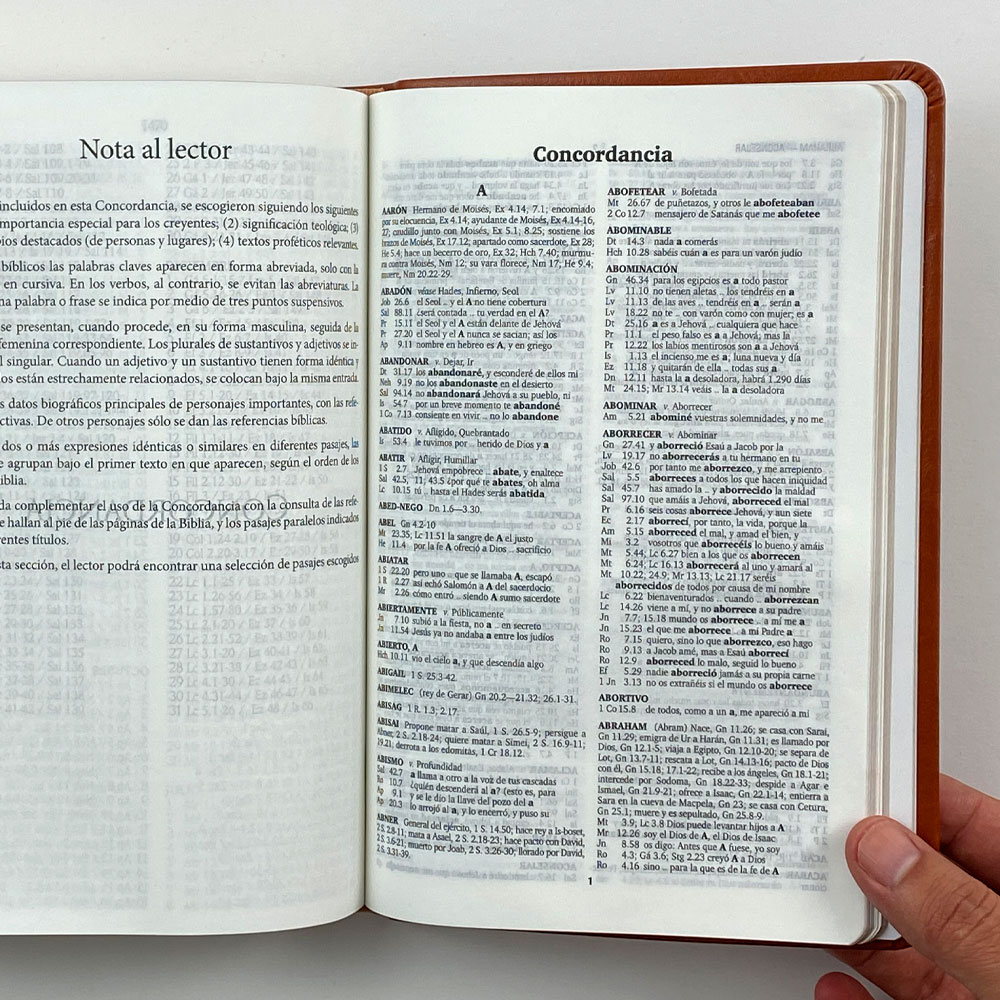 Nota al lector
incluidos en esta Concordancia, se escogieron siguiendo los siguientes
importancia especial para los creyentes; (2) significación teológica; (3)
ios destacados (de personas y lugares); (4) textos proféticos relevantes.
bíblicos las palabras claves aparecen en forma abreviada, solo con la
en cursiva. En los verbos, al contrario, se evitan las abreviaturas. La
na palabra o frase se indica por medio de tres puntos suspensivos.
se presentan, cuando procede, en su forma masculina, seguida de la
femenina correspondiente. Los plurales de sustantivos y adjetivos se in-
l singular. Cuando un adjetivo y un sustantivo tienen forma idéntica y
os están estrechamente relacionados, se colocan bajo la misma entrada.
s datos biográficos principales de personajes importantes, con las refe-
ctivas. De otros personajes sólo se dan las referencias bíblicas.
dos o más expresiones idénticas o similares en diferentes pasajes, las
e agrupan bajo el primer texto en que aparecen, según el orden de los
iblia.
da complementar el uso de la Concordancia con la consulta de las refe-
e hallan al pie de las páginas de la Biblia, y los pasajes paralelos indicados
rentes títulos.
sta sección, el lector podrá encontrar una selección de pasajes escogidos
Concordancia
A
AARÓN Hermano de Moisés, Ex 4.14; 7.1; encomiado
por su elocuencia, Ex 4.14; ayudante de Moisés, Ex 4.14-16,
27; caudillo junto con Moisés, Ex 5.1; 8.25; sostiene los
brazos de Moisés, Ex 17.12; apartado como sacerdote, Ex 28;
He 5.4; hace un becerro de oro, Ex 32; Hch 7.40; murmu-
ra contra Moisés, Nm 12; su vara florece, Nm 17; He 9.4;
muere, Nm 20.22-29.
ABADÓN véase Hades, Infierno, Seol
Job 26.6 el Seol .. y el A no tiene cobertura
Sal 88.11 ¿será contada .. tu verdad en el A?
Pr 15.11 el Seol y el A están delante de Jehová
Pr 27.20 el Seol y el A nunca se sacian; así los
Ap 9.11 nombre en hebreo es A, y en griego
ABANDONAR v. Dejar, Ir
Dt 31.17 los abandonaré, y esconderé de ellos mi
Neh 9.19 no los abandonaste en el desierto
Sal 94.14 no abandonará Jehová a su pueblo, ni
Is 54.7 por un breve momento te abandoné
1 Co 7.13 consiente en vivir .. no lo abandone
ABATIDO v. Afligido, Quebrantado
Is 53.4 le tuvimos por .. herido de Dios y a
ABATIR v. Afligir, Humillar
1 S 2.7 Jehová empobrece .. abate, y enaltece
Sal 42.5, 11; 43.5 ¿por qué te abates, oh alma
Lc 10.15 tú .. hasta el Hades serás abatida
ABED-NEGO Dn 1.6—3.30.
ABEL Gn 4.2-10
Mt 23.35; Lc 11.51 la sangre de A el justo
He 11.4 por la fe A ofreció a Dios .. sacrificio
ABIATAR
1 S 22.20 pero uno .. que se llamaba A, escapó
1 R 2.27 así echó Salomón a A del sacerdocio
Mr 2.26 cómo entró .. siendo A sumo sacerdote
ABIERTAMENTE v. Públicamente
Jn 7.10 subió a la fiesta, no a .. en secreto
Jn 11.54 Jesús ya no andaba a entre los judíos
ABIERTO, A
Hch 10.11 vio el cielo a, y que descendía algo
ABIGAIL 1 S. 25.3-42.
ABIMELEC (rey de Gerar) Gn 20.2—21.32; 26.1-31.
ABISAG 1 R. 1.3; 2.17.
ABISAI Propone matar a Saúl, 1 S. 26.5-9; persigue a
Abner, 2 S. 2.18-24; quiere matar a Simei, 2 S. 16.9-11;
19.21; derrota a los edomitas, 1 Cr 18.12.
ABISMO v. Profundidad
Sal 42.7 a llama a otro a la voz de tus cascadas
Ro 10.7 ¿quién descenderá al a? (esto es, para
Ap 9.1 y se le dio la llave del pozo del a
Ap 20.3 lo arrojó al a, y lo encerró, y puso su
ABNER General del ejército, 1 S. 14.50; hace rey a Is-boset,
2 S. 2.8-11; mata a Asael, 2 S. 2.18-23; hace pacto con David,
2 S. 3.6-21; muerto por Joab, 2 S. 3.26-30; llorado por David,
2 S. 3.31-39.
ABOFETEAR v. Bofetada
Mt 26.67 de puñetazos, y otros le abofeteaban
2 Co 12.7 mensajero de Satanás que me abofetee
ABOMINABLE
Dt 14.3 nada a comerás
Hch 10.28 sabéis cuán a es para un varón judío
ABOMINACIÓN
Gn 46.34 para los egipcios es a todo pastor
Lv 11.10 no tienen aletas .. los tendréis en a
Lv 11.13 de las aves .. tendréis en a .. serán a
Lv 18.22 no te .. con varón como con mujer; es a
Dt 25.16 a es a Jehová .. cualquiera que hace
Pr 11.1 el peso falso es a a Jehová; mas la
Pr 12.22 los labios mentirosos son a a Jehová
Is 1.13 el incienso me es a; luna nueva y día
Ez 11.18 y quitarán de ella .. todas sus a
Dn 12.11 hasta la a desoladora, habrá 1.290 días
Mt 24.15; Mr 13.14 veáis .. la a desoladora
ABOMINAR v. Aborrecer
Am 5.21 abominé vuestras solemnidades, y no me
ABORRECER v. Abominar
Gn 27.41 y aborreció Esaú a Jacob por la
Lv 19.17 no aborrecerás a tu hermano en tu
Job 42.6 por tanto me aborrezco, y me arrepiento
Sal 5.5 aborreces a todos los que hacen iniquidad
Sal 45.7 has amado la .. y aborrecido la maldad
Sal 97.10 que amáis a Jehová, aborreced el mal
Pr 6.16 seis cosas aborrece Jehová, y aun siete
Ec 2.17 aborrecí, por tanto, la vida, porque la
Am 5.15 aborreced el mal, y amad el bien, y
Mi 3.2 vosotros que aborrecéis lo bueno, y amáis
Mt 5.44; Lc 6.27 bien a los que os aborrecen
Mt 6.24; Lc 16.13 aborrecerá al uno y amará al
Mt 10.22; 24.9; Mr 13.13; Lc 21.17 seréis
aborrecidos de todos por causa de mi nombre
Lc 6.22 bienaventurados .. cuando .. aborrezcan
Lc 14.26 viene a mí, y no aborrece a su padre
Jn 7.7; 15.18 mundo os aborrece .. a mí me a
Jn 15.23 el que me aborrece .. a mi Padre a
Ro 7.15 quiero, sino lo que aborrezco, eso hago
Ro 9.13 a Jacob amé, mas a Esaú aborrecí
Ro 12.9 aborreced lo malo, seguid lo bueno
Ef 5.29 nadie aborreció jamás a su propia carne
1 Jn 3.13 no os extrañéis si el mundo os aborrece
ABORTIVO
1 Co 15.8 de todos, como a un a, me apareció a mí
ABRAHAM (Abram) Nace, Gn 11.26; se casa con Sarai,
Gn 11.29; emigra de Ur a Harán, Gn 11.31; es llamado por
Dios, Gn 12.1-5; viaja a Egipto, Gn 12.10-20; se separa de
Lot, Gn 13.7-11; rescata a Lot, Gn 14.13-16; pacto de Dios
con él, Gn 15.18; 17.1-22; recibe a los ángeles, Gn 18.1-21;
intercede por Sodoma, Gn 18.22-33; despide a Agar e
Ismael, Gn 21.9-21; ofrece a Isaac, Gn 22.1-14; entierra a
Sara en la cueva de Macpela, Gn 23; se casa con Cetura,
Gn 25.1; muere y es sepultado, Gn 25.8-9.
Mt 3.9; Lc 3.8 Dios puede levantar hijos a A
Mr 12.26 soy el Dios de A, el Dios de Isaac
Jn 8.58 os digo: Antes que A fuese, yo soy
Ro 4.3; Gá 3.6; Stg 2.23 creyó A a Dios
Ro 4.16 sino .. para la que es de la fe de A
1